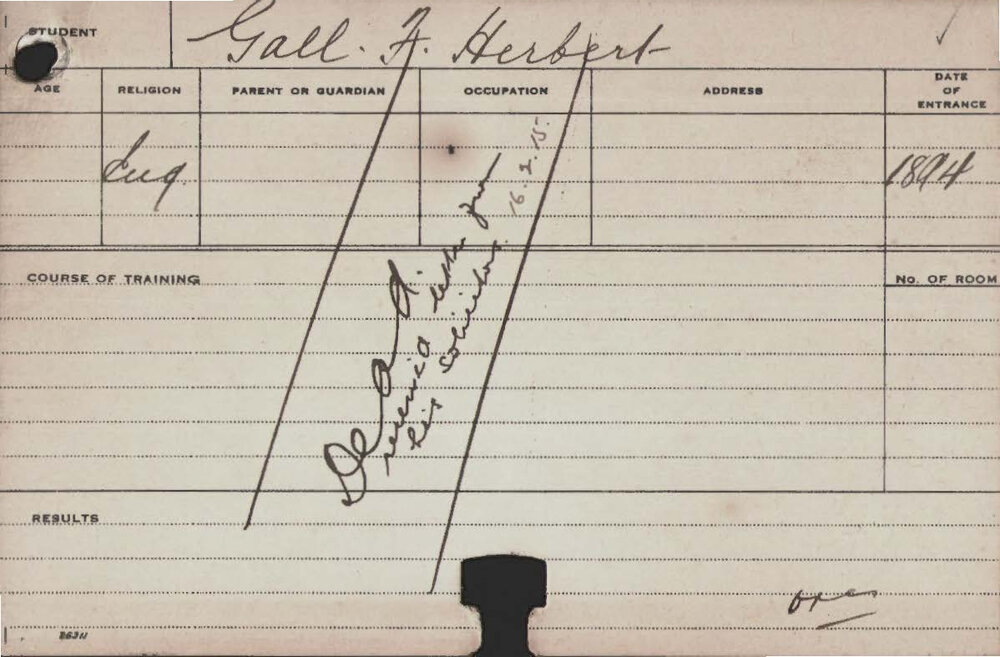 STUDENT
Gall. F. Herbert
AGE
RELIGION
PARENT OR GUARDIAN
OCCUPATION
ADDRESS
DATE
OF
ENTRANCE
1894
Dead.
received letter from
his solicitors. 16.2.15.
COURSE OF TRAINING
NO. OF ROOM
RESULTS